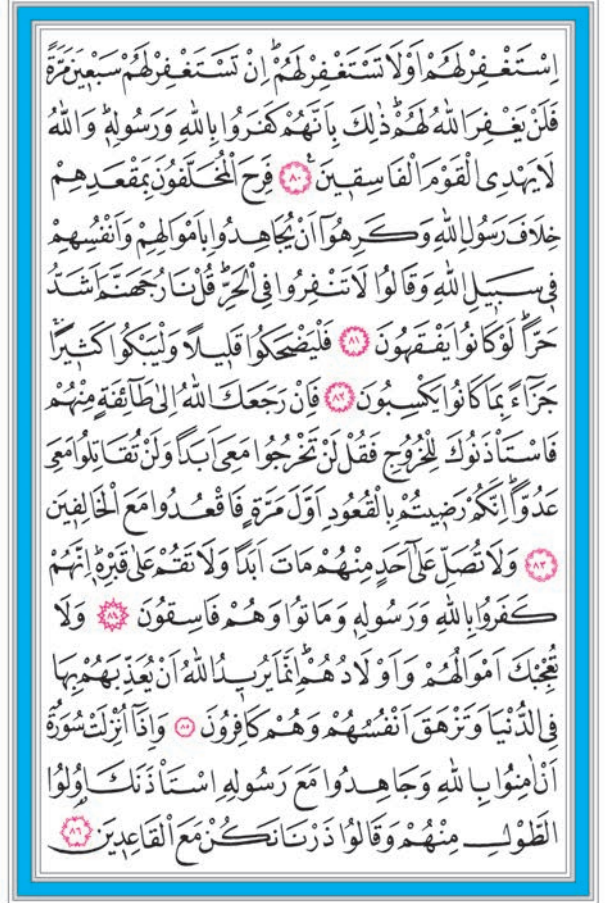 اِسْتَغْفِرْ لَهُمْ اَوْ لَا تَسْتَغْفِرْ لَهُمْ اِنْ تَسْتَغْفِرْ لَهُمْ سَبْعٖينَ مَرَّةً
فَلَنْ يَغْفِرَ اللّٰهُ لَهُمْ ذٰلِكَ بِاَنَّهُمْ كَفَرُوا بِاللّٰهِ وَرَسُولِهٖ وَاللّٰهُ
لَا يَهْدِى الْقَوْمَ الْفَاسِقٖينَ ﴿٨٠﴾ فَرِحَ الْمُخَلَّفُونَ بِمَقْعَدِهِمْ
خِلَافَ رَسُولِ اللّٰهِ وَكَرِهُوٓا اَنْ يُجَاهِدُوا بِاَمْوَالِهِمْ وَاَنْفُسِهِمْ
فٖى سَبٖيلِ اللّٰهِ وَقَالُوا لَا تَنْفِرُوا فِى الْحَرِّ قُلْ نَارُ جَهَنَّمَ اَشَدُّ
حَرًّا لَوْ كَانُوا يَفْقَهُونَ ﴿٨١﴾ فَلْيَضْحَكُوا قَلٖيلًا وَلْيَبْكُوا كَثٖيرًا
جَزَٓاءً بِمَا كَانُوا يَكْسِبُونَ ﴿٨٢﴾ فَاِنْ رَجَعَكَ اللّٰهُ اِلٰى طَٓائِفَةٍ مِنْهُمْ
فَاسْتَاْذَنُوكَ لِلْخُرُوجِ فَقُلْ لَنْ تَخْرُجُوا مَعِىَ اَبَدًا وَلَنْ تُقَاتِلُوا مَعِىَ
عَدُوًّا اِنَّكُمْ رَضٖيتُمْ بِالْقُعُودِ اَوَّلَ مَرَّةٍ فَاقْعُدُوا مَعَ الْخَالِفٖينَ
﴿٨٣﴾ وَلَا تُصَلِّ عَلٰٓى اَحَدٍ مِنْهُمْ مَاتَ اَبَدًا وَلَا تَقُمْ عَلٰى قَبْرِهٖ اِنَّهُمْ
كَفَرُوا بِاللّٰهِ وَرَسُولِهٖ وَمَاتُوا وَهُمْ فَاسِقُونَ ﴿٨٤﴾ وَلَا
تُعْجِبْكَ اَمْوَالُهُمْ وَاَوْلَادُهُمْ اِنَّمَا يُرٖيدُ اللّٰهُ اَنْ يُعَذِّبَهُمْ بِهَا
فِى الدُّنْيَا وَتَزْهَقَ اَنْفُسُهُمْ وَهُمْ كَافِرُونَ ﴿٨٥﴾ وَاِذَٓا اُنْزِلَتْ سُورَةٌ
اَنْ اٰمِنُوا بِاللّٰهِ وَجَاهِدُوا مَعَ رَسُولِهِ اسْتَاْذَنَكَ اُولُوا
الطَّوْلِ مِنْهُمْ وَقَالُوا ذَرْنَا نَكُنْ مَعَ الْقَاعِدٖينَ ﴿٨٦﴾